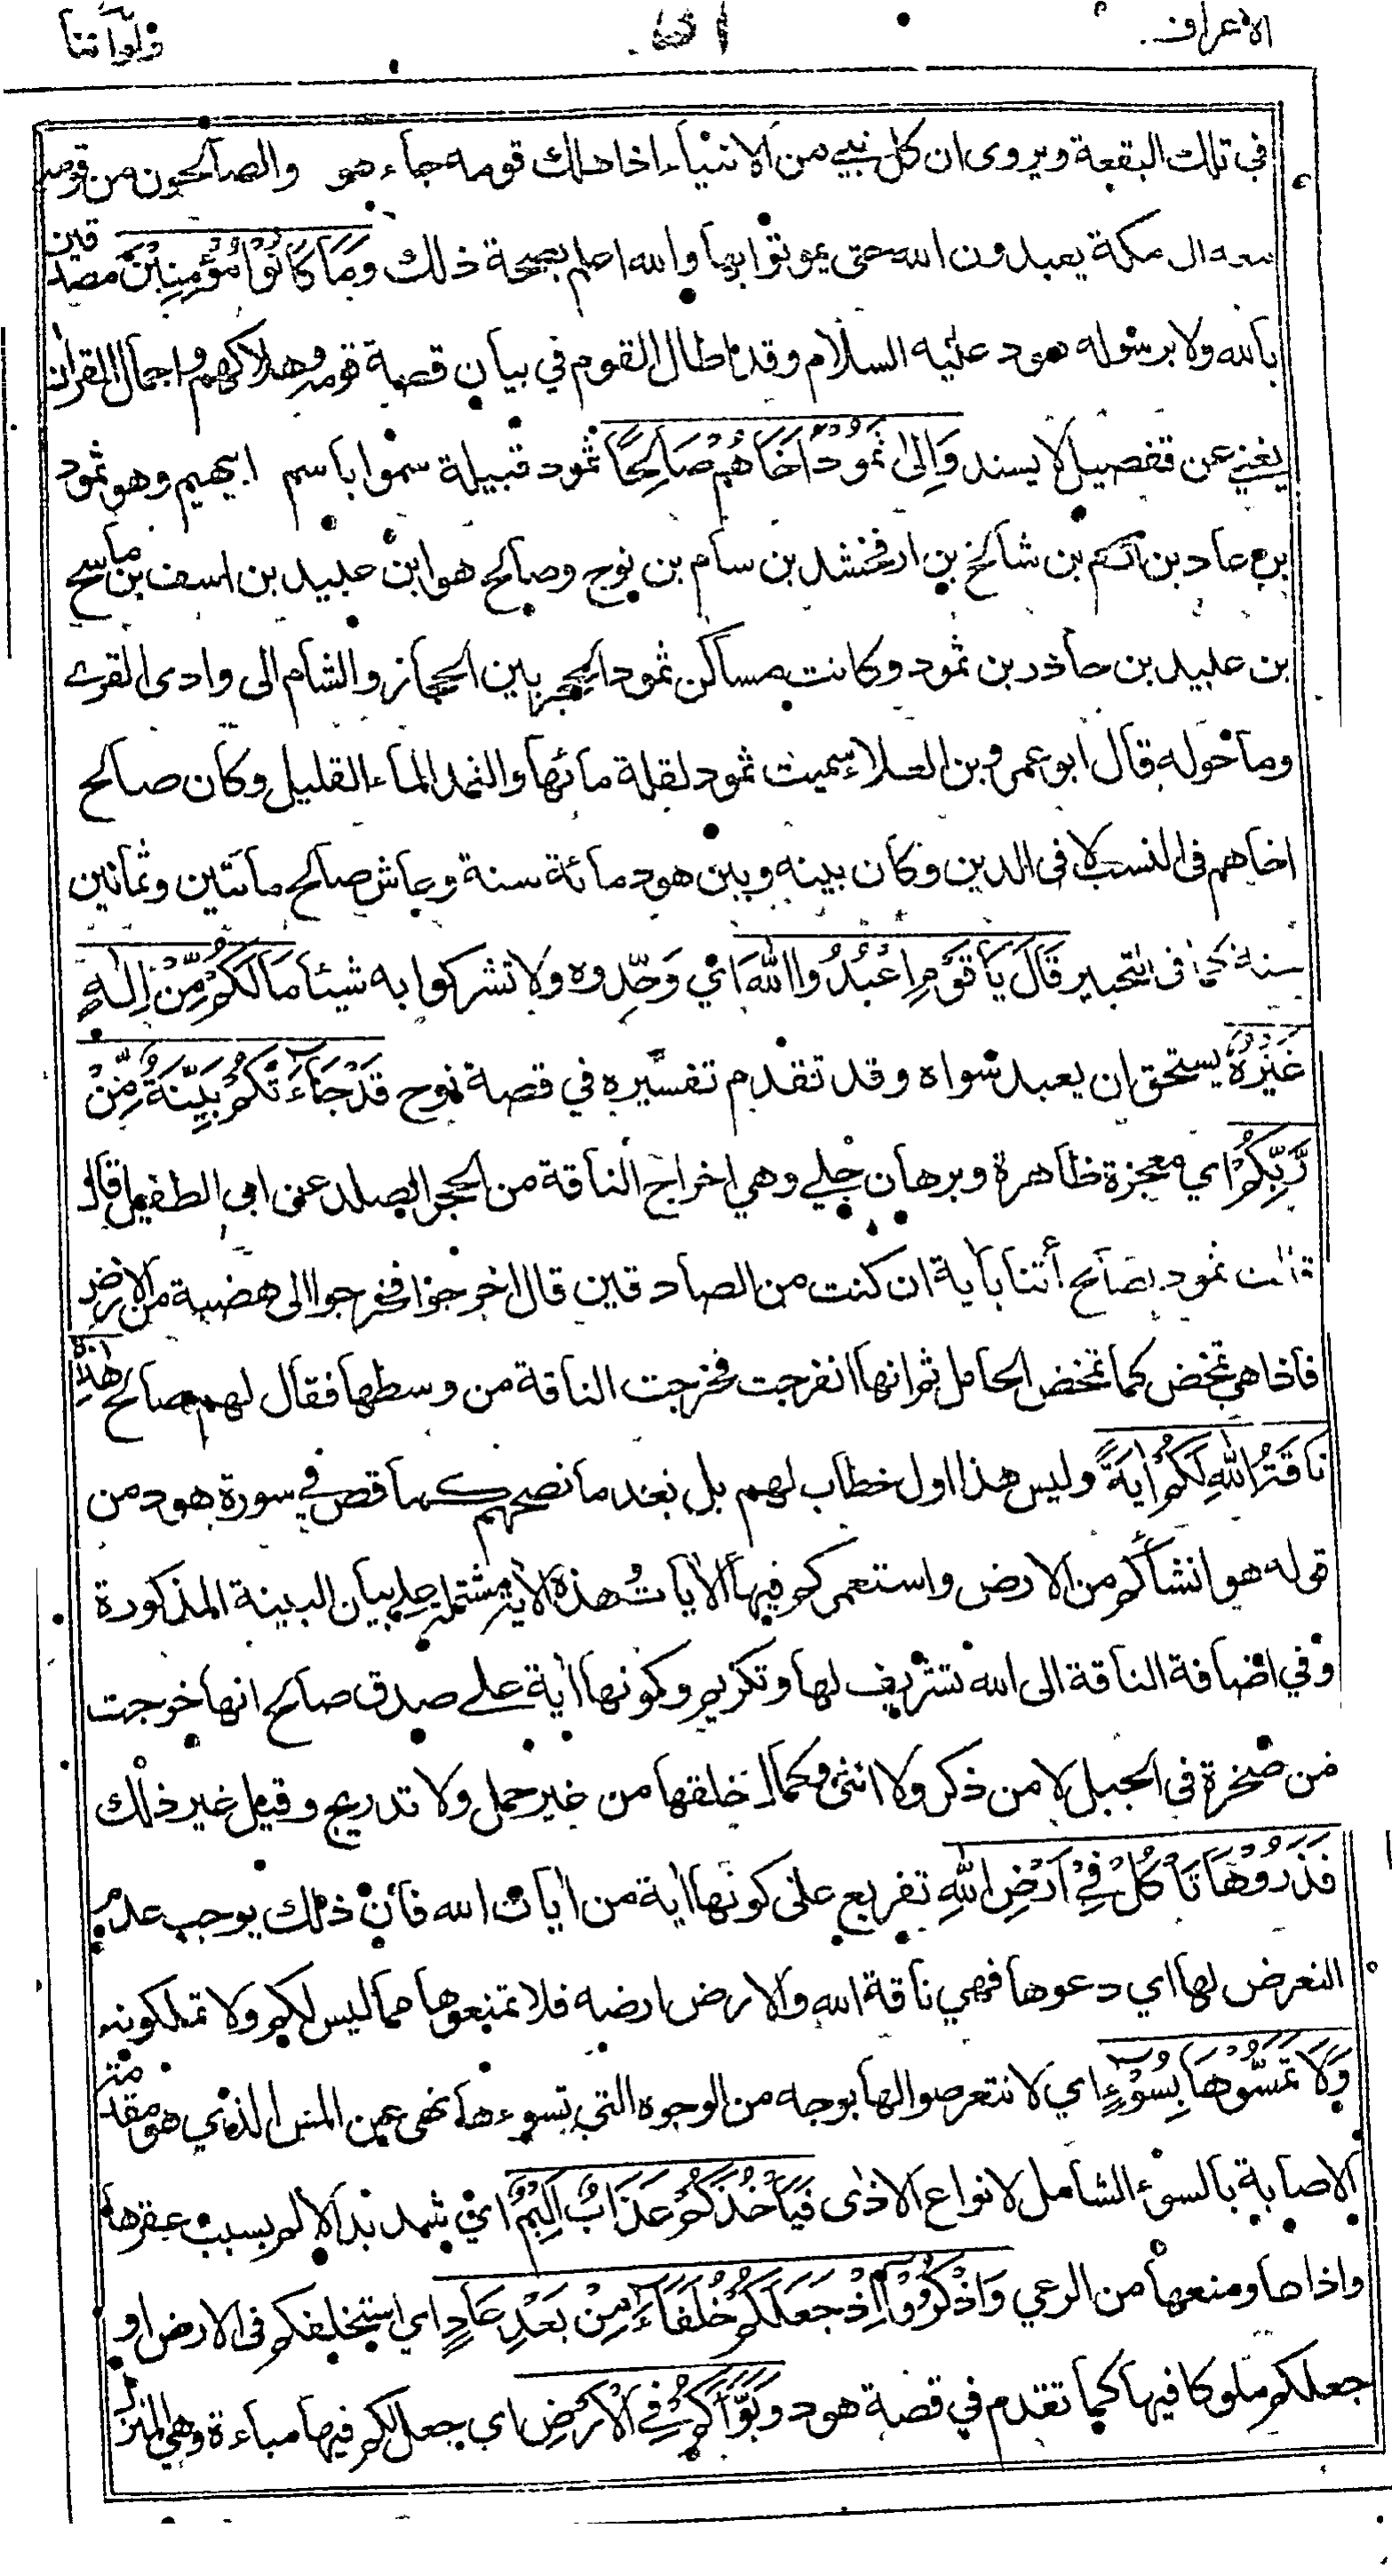 الاعراف ولواننا
في تلك البقعة ويروى ان كل نبي من الانبياء اذا هلك قومه جاء هو والصالحون من قومه
معه الى مكة يعبدون الله حتى يموتوا بها والله اعلم بصحة ذلك وَمَا كَانُوْا مُؤْمِنِيْنَ مصدقين
بالله ولا برسوله هود عليه السلام وقد اطال القوم في بيان قصة قومه وهلاكهم واجمال القرآن
يغني عن تفصيل لا يسند وَاِلىٰ ثَمُوْدَ اَخَاهُمْ صَالِحًا ثمود قبيلة سموا باسم ابيهم وهو ثمود
بن عاد بن ارم بن شالخ بن ارفخشد بن سام بن نوح وصالح هو ابن عبيد بن اسف بن ماسح
بن عبيد بن حاذر بن ثمود وكانت مساكن ثمود الحجر بين الحجاز والشام الى وادى القرى
وما حوله قال ابو عمرو بن العلاء سميت ثمود لقلة مائها والثمد الماء القليل وكان صالح
اخاهم فى النسب لا فى الدين وكان بينه وبين هود مائة سنة وعاش صالح مائتين وثمانين
سنة كما فى التحبير قَالَ يَا قَوْمِ اعْبُدُوا اللهَ اي وَحِّدوه ولا تشركوا به شيئا مَا لَكُمْ مِّنْ اِلٰهٍ
غَيْرُهُ يستحق ان يعبد سواه وقد تقدم تفسيره في قصة نوح قَدْ جَاءَتْكُمْ بَيِّنَةٌ مِّنْ
رَّبِّكُمْ اي معجزة ظاهرة وبرهان جلي وهي اخراج الناقة من الحجر الصلد عن ابى الطفيل قال
قالت ثمود لصالح أتنا بأية ان كنت من الصادقين قال اخرجوا فخرجوا الى هضبة من الارض
فاذا هي تمخض كما تمخض الحامل ثم انها انفرجت فخرجت الناقة من وسطها فقال لهم صالح هٰذِهٖ
نَاقَةُ اللهِ لَكُمْ اٰيَةً وليس هذا اول خطاب لهم بل بعد ما نصحهم كما قص في سورة هود من
قوله هو انشأكم من الارض واستعمركم فيها الأيات هذه الاية مشتملة على بيان البينة المذكورة
وفي اضافة الناقة الى الله تشريف لها وتكريم وكونها اٰية على صدق صالح انها خرجت
من صخرة فى الجبل لا من ذكر ولا انثى وكمال خلقها من غير حمل ولا تدريج وقيل غير ذلك
فَذَرُوْهَا تَأْكُلْ فِيْ اَرْضِ اللهِ تفريع على كونها اٰية من اٰيات الله فان ذلك يوجب عدم
التعرض لها اي دعوها فهي ناقة الله والارض ارضه فلا تمنعوها مما ليس لكم ولا تملكونه
وَلَا تَمَسُّوْهَا بِسُوْءٍ اي لا تتعرضوا لها بوجه من الوجوه التي تسوءها نهى عن المس الذي هو مقدمة
الاصابة بالسوء الشامل لانواع الاذى فَيَأْخُذَكُمْ عَذَابٌ اَلِيْمٌ اي شديد الألم بسبب عقرها
واذاها ومنعها من الرعي وَاذْكُرُوْا اِذْ جَعَلَكُمْ خُلَفَاءَ مِنْ بَعْدِ عَادٍ اي استخلفكم فى الارض او
جعلكم ملوكا فيها كما تقدم في قصة هود وَبَوَّاَكُمْ فِي الْاَرْضِ اي جعل لكم فيها مباءة وهي المنزل